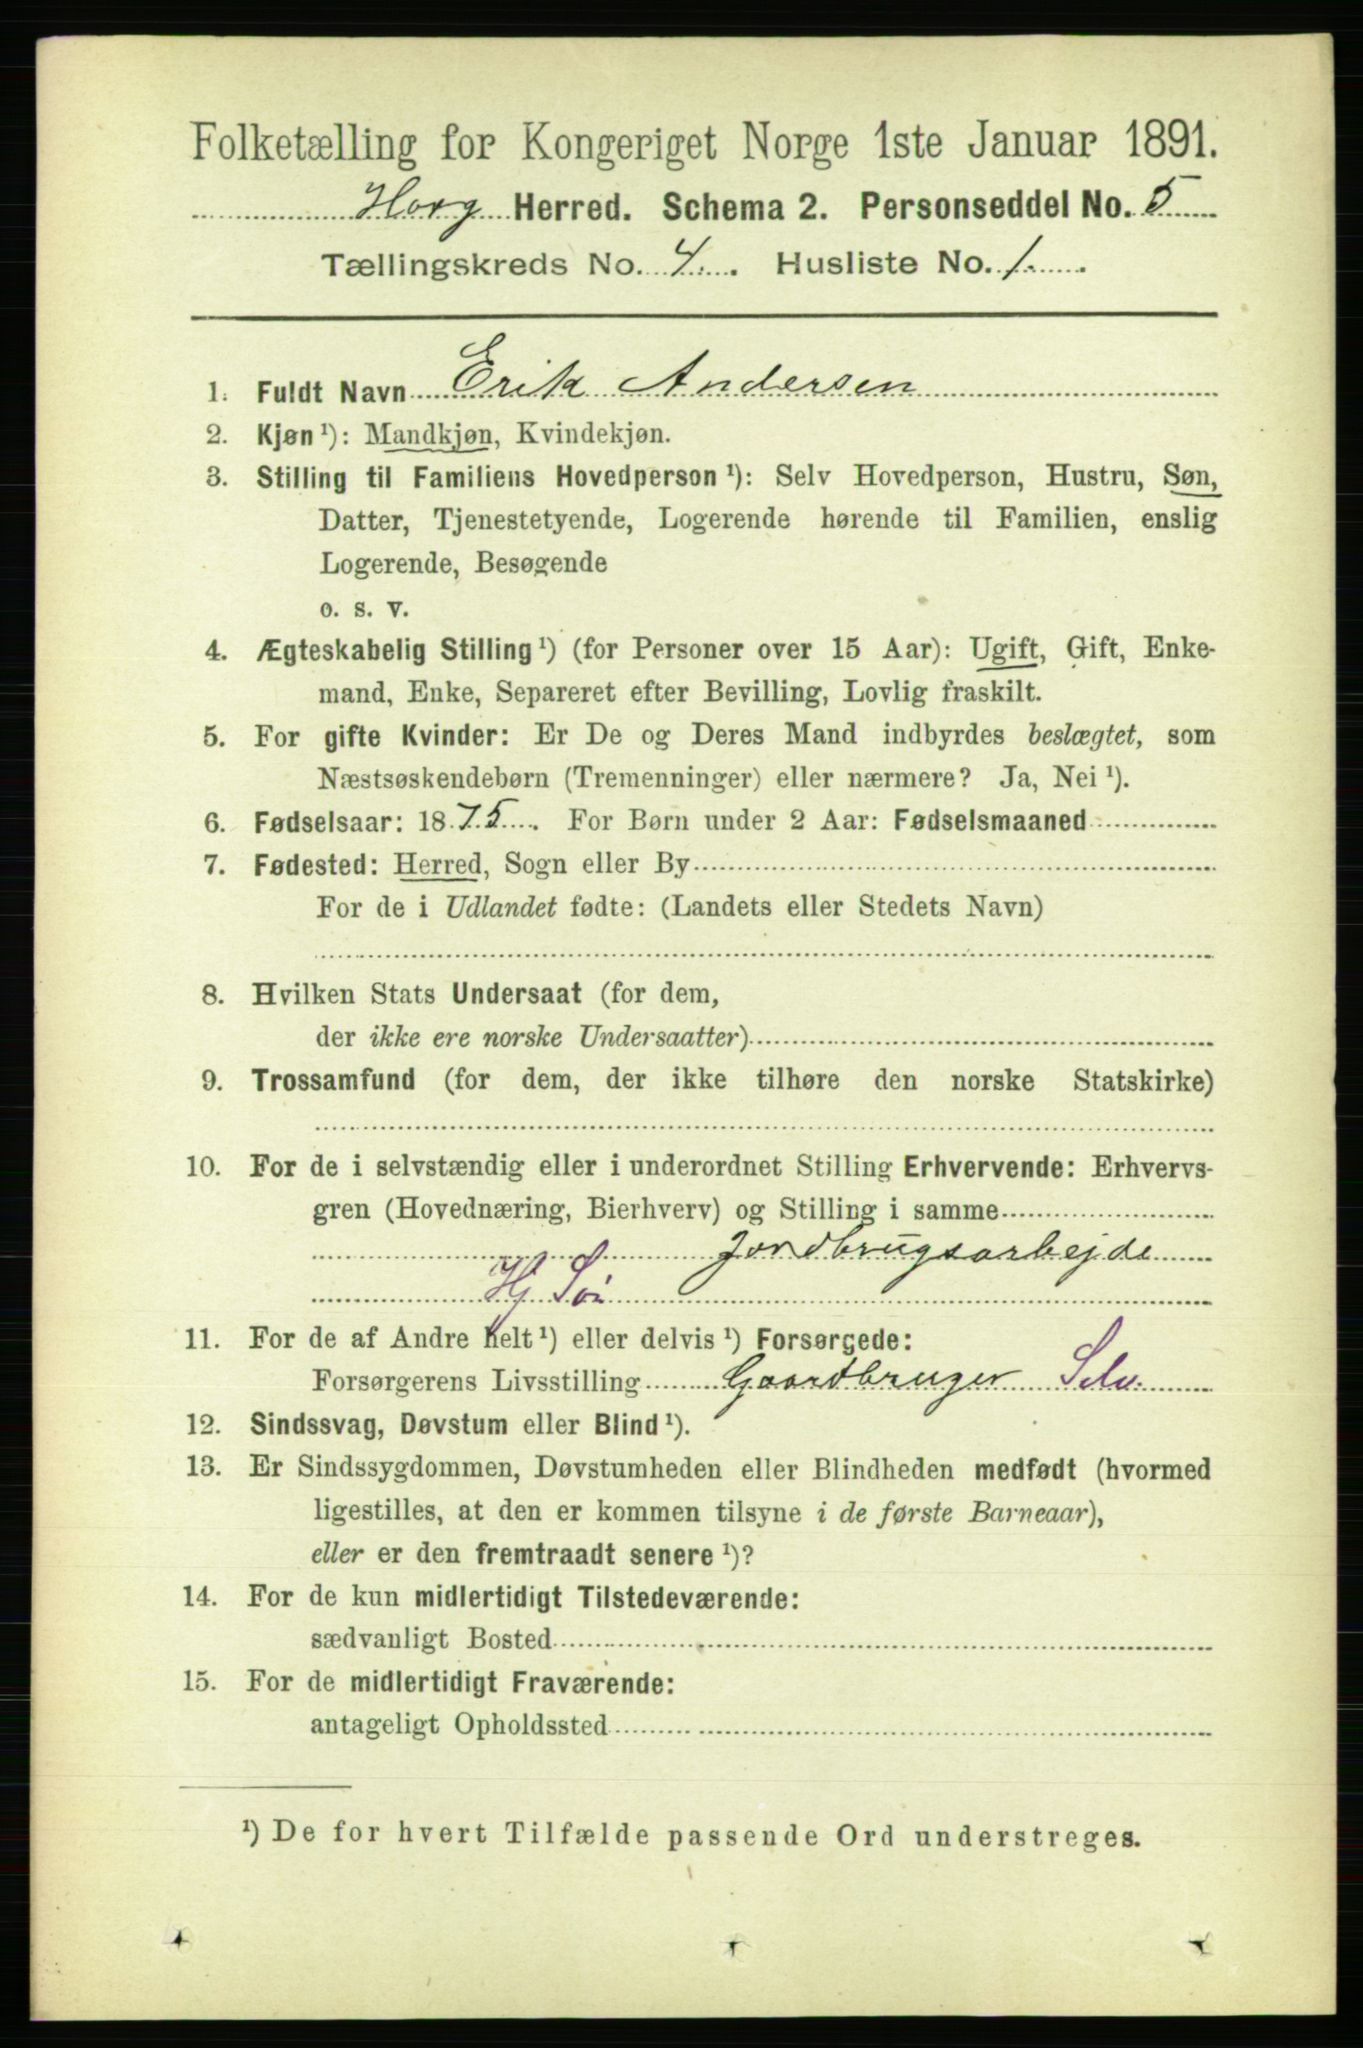 Folketælling for Kongeriget Norge 1ste Januar 1891.
Horg Herred. Schema 2. Personseddel No. 5
Tællingskreds No. 4. Husliste No. 1.
1. Fuldt Navn Erik Andersen
2. Kjøn ¹): Mandkjøn, Kvindekjøn.
3. Stilling til Familiens Hovedperson ¹): Selv Hovedperson, Hustru, Søn,
Datter, Tjenestetyende, Logerende hørende til Familien, enslig
Logerende, Besøgende
o. s. v.
4. Ægteskabelig Stilling ¹) (for Personer over 15 Aar): Ugift, Gift, Enke-
mand, Enke, Separeret efter Bevilling, Lovlig fraskilt.
5. For gifte Kvinder: Er De og Deres Mand indbyrdes beslægtet, som
Næstsøskendebørn (Tremenninger) eller nærmere? Ja, Nei ¹).
6. Fødselsaar: 1875. For Børn under 2 Aar: Fødselsmaaned
7. Fødested: Herred, Sogn eller By
For de i Udlandet fødte: (Landets eller Stedets Navn)
8. Hvilken Stats Undersaat (for dem,
der ikke ere norske Undersaatter)
9. Trossamfund (for dem, der ikke tilhøre den norske Statskirke)
10. For de i selvstændig eller i underordnet Stilling Erhvervende: Erhvervs-
gren (Hovednæring, Bierhverv) og Stilling i samme
Jordbrugsarbejde
Hj Sø
11. For de af Andre helt ¹) eller delvis ¹) Forsørgede:
Forsørgerens Livsstilling Gaardbruger Selv.
12. Sindssvag, Døvstum eller Blind ¹).
13. Er Sindssygdommen, Døvstumheden eller Blindheden medfødt (hvormed
ligestilles, at den er kommen tilsyne i de første Barneaar),
eller er den fremtraadt senere ¹)?
14. For de kun midlertidigt Tilstedeværende:
sædvanligt Bosted
15. For de midlertidigt Fraværende:
antageligt Opholdssted
¹) De for hvert Tilfælde passende Ord understreges.